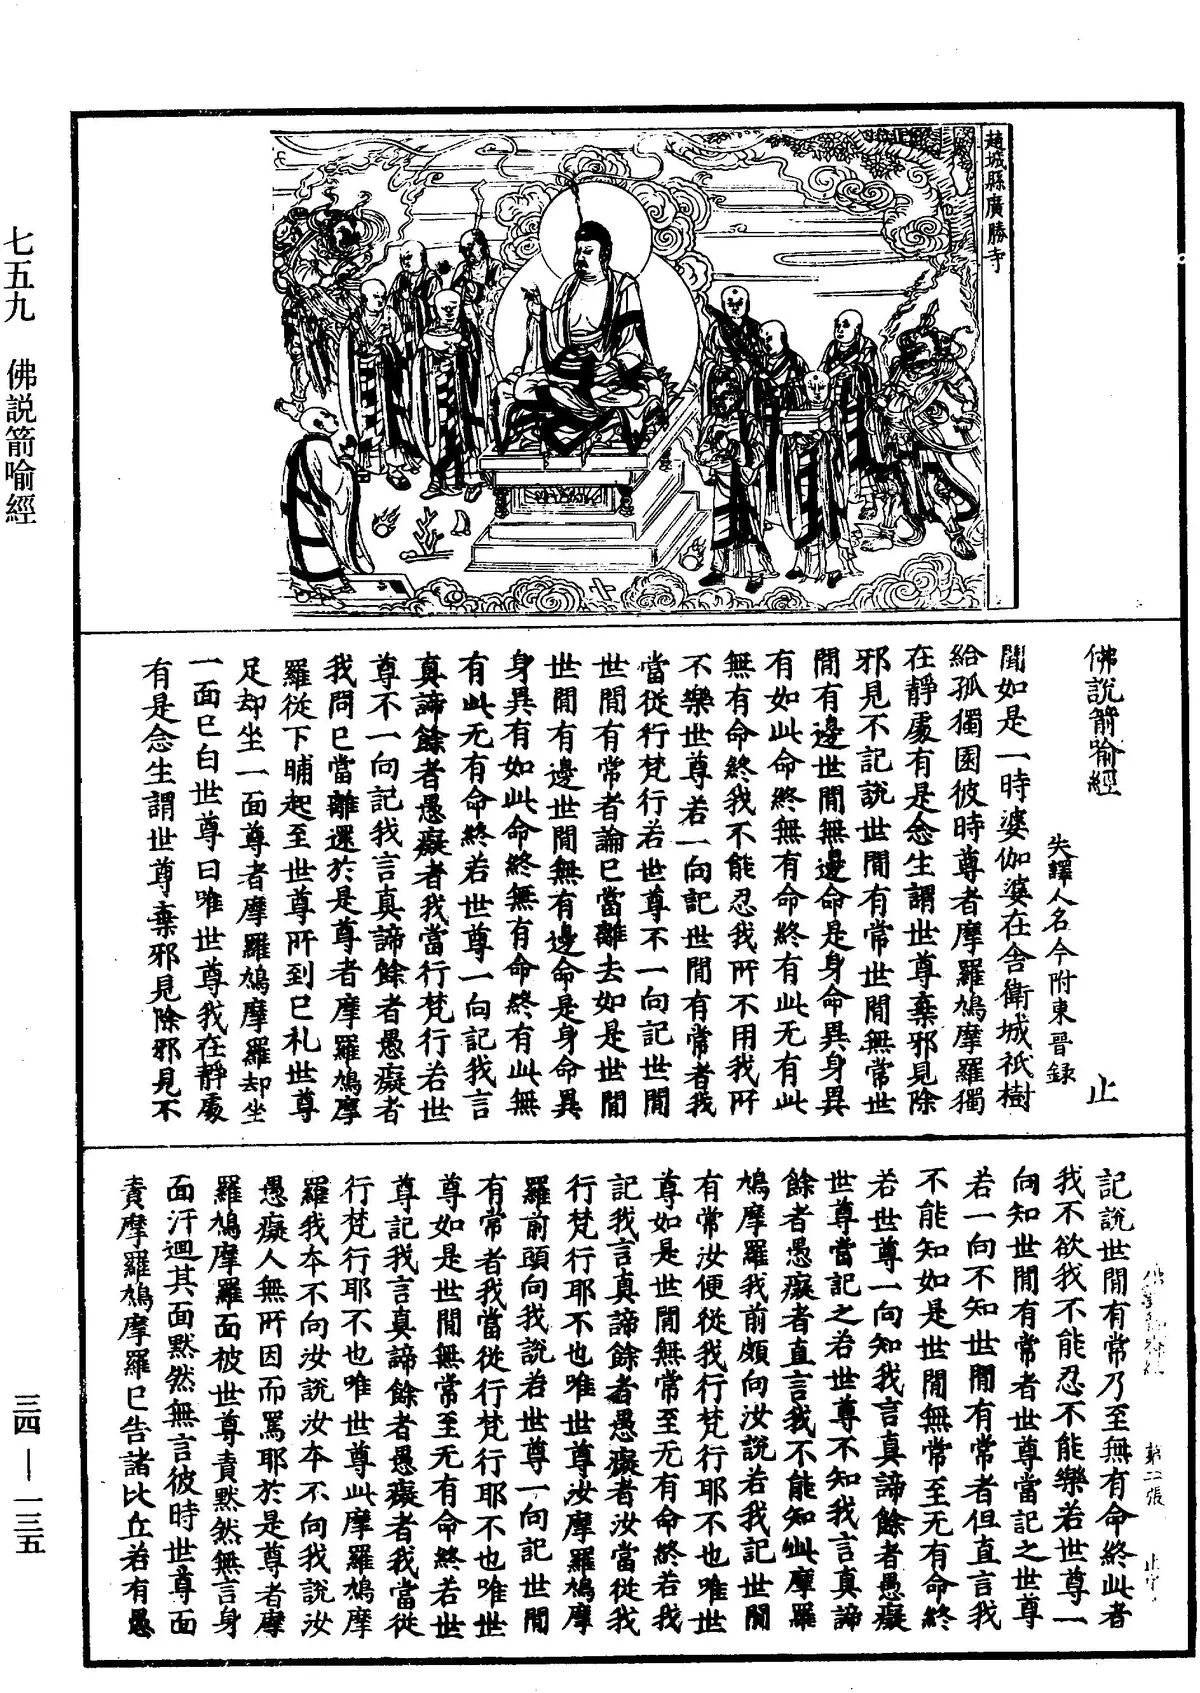 趙城縣廣勝寺
七五九　佛説箭喻經
三四—一三五
佛說箭喻經　止
失譯人名今附東晉録
聞如是一時婆伽婆在舍衛城祇樹
給孤獨園彼時尊者摩羅鳩摩羅獨
在靜處有是念生謂世尊棄邪見除
邪見不記說世間有常世間無常世
間有邊世間無邊命是身命異身異
有如此命終無有命終有此无有此
無有命終我不能忍我所不用我所
不樂世尊若一向記世間有常者我
當從行梵行若世尊不一向記世間
世間有常者論已當離去如是世間
世間有邊世間無有邊命是身命異
身異有如此命終無有命終有此無
有此无有命終若世尊一向記我言
真諦餘者愚癡者我當行梵行若世
尊不一向記我言真諦餘者愚癡者
我問已當離還於是尊者摩羅鳩摩
羅從下晡起至世尊所到已礼世尊
足却坐一面尊者摩羅鳩摩羅却坐
一面已白世尊曰唯世尊我在靜處
有是念生謂世尊棄邪見除邪見不
第二張　止
記說世間有常乃至無有命終此者
我不欲我不能忍不能樂若世尊一
向知世間有常者世尊當記之世尊
若一向不知世間有常者但直言我
不能知如是世間無常至无有命終
若世尊一向知我言真諦餘者愚癡
世尊當記之若世尊不知我言真諦
餘者愚癡者直言我不能知此摩羅
鳩摩羅我前頗向汝說若我記世間
有常汝便從我行梵行耶不也唯世
尊如是世間無常至无有命終若我
記我言真諦餘者愚癡者汝當從我
行梵行耶不也唯世尊汝摩羅鳩摩
羅前頭向我說若世尊一向記世間
有常者我當從行梵行耶不也唯世
尊如是世間無常至无有命終若世
尊記我言真諦餘者愚癡者我當從
行梵行耶不也唯世尊此摩羅鳩摩
羅我夲不向汝說汝夲不向我說汝
愚癡人無所因而罵耶於是尊者摩
羅鳩摩羅面被世尊責默然無言身
面汗迴其面默然無言彼時世尊面
責摩羅鳩摩羅已告諸比丘若有愚